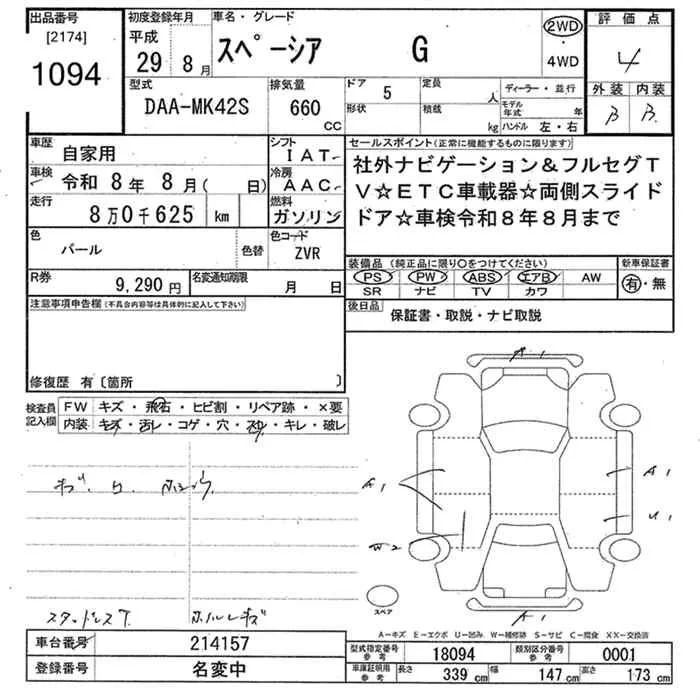 出品番号
[2174]
1094
初度登録年月
平成
29 8 月
車名・グレード
スペーシア G
2WD
・
4WD
評価点
4
外装 内装
B B
型式
DAA-MK42S
排気量
660
CC
ドア 5
形状
定員 人
積載 kg
ディーラー・並行
モデル年式 年
ハンドル 左・右
車歴 自家用
車検 令和 8 年 8 月( 日)
走行 8万0千625 km
シフト
IAT
冷房
AAC
燃料
ガソリン
セールスポイント(正常に機能するものに限ります)
社外ナビゲーション&フルセグT
V☆ETC車載器☆両側スライド
ドア☆車検令和8年8月まで
色 パール
色替
色コード
ZVR
装備品 (純正品に限り○をつけてください)
PS PW ABS エアB AW
SR ナビ TV カワ
新車保証書
有・無
R券 9,290 円
名変通知期限 月 日
後日品 保証書・取説・ナビ取説
注意事項申告欄(不具合内容等は具体的に記入して下さい)
修復歴 有〔箇所 〕
検査員
記入欄
FW キズ・飛石・ヒビ割・リペア跡・×要
内装 キズ・汚レ・コゲ・穴・スレ・キレ・破レ
A1
A1
A1
U1
W2
スペア
A1
スタッドレスT
ホイルキズ
A－キズ E－エクボ U－凹み W－補修跡 S－サビ C－腐食 XX－交換済
車台番号 214157
登録番号 名変中
型式指定番号
参考
18094
類別区分番号
参考
0001
車庫証明用
参考
長さ 339 cm 幅 147 cm 高さ 173 cm